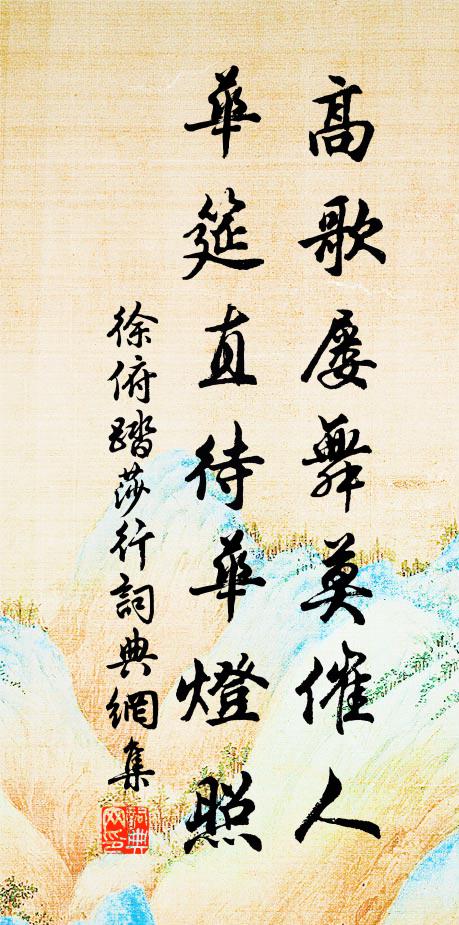 高歌屡舞莫催人
華筵直待華燈照
徐俯踏莎行詞典網集
詞典网印